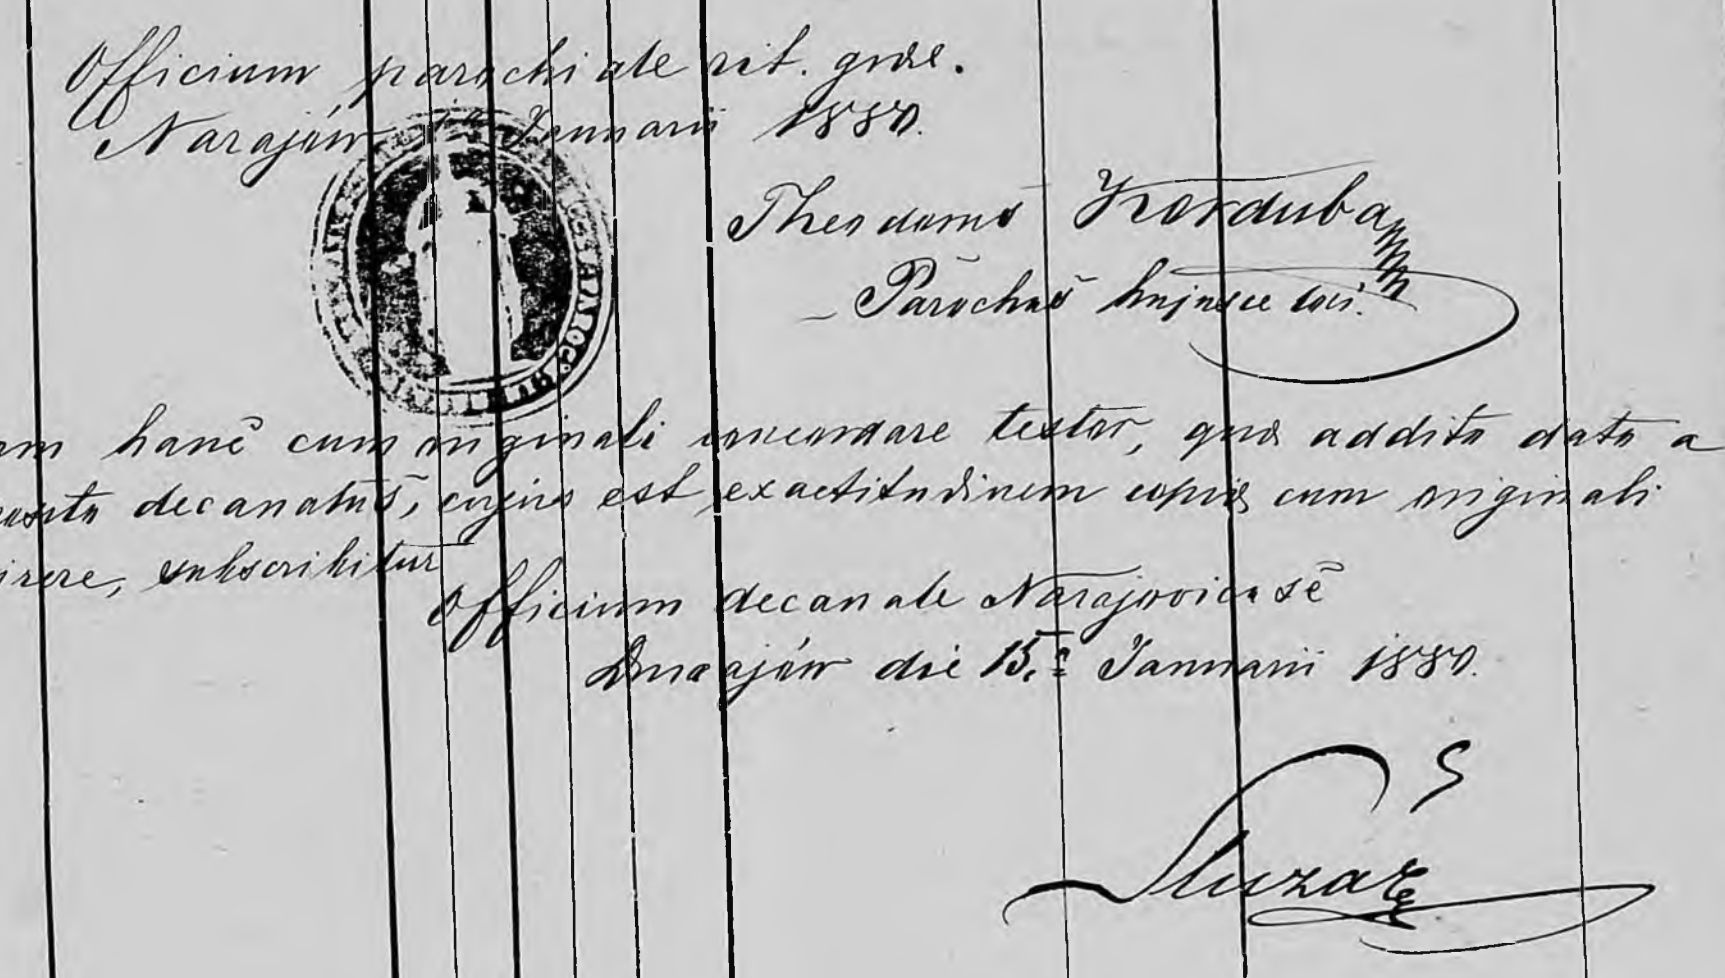 Officium parochiale rit. graec.
Narajów Januarii 1880.
Theodorus Korduba
Parochus hujusce loci.
hanc cum originali concordare testor, quod addito dato a
decanatus, cujus est exactitudinem copiae cum originali
subscribitur
Officium decanale Narajoviense
Narajów die 15.a Januarii 1880.